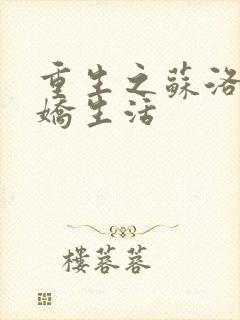 重生之蘇洛
嬌生活
樓蓉蓉